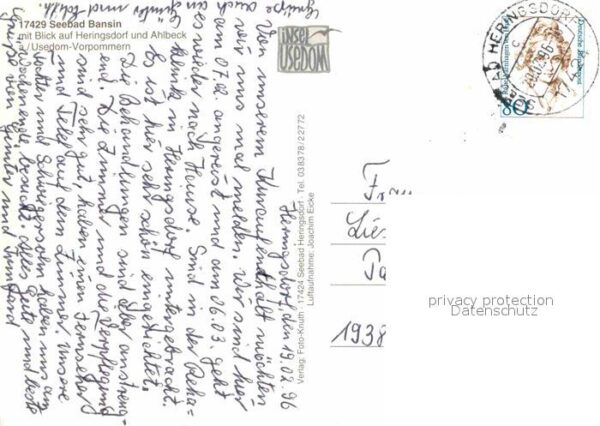 17429 Seebad Bansin
mit Blick auf Heringsdorf und Ahlbeck
a./Usedom-Vorpommern
insel
USEDOM
Heringsdorf, den 19.02.96
Von unserem Kuraufenthalt möchten
wir uns mal melden. Wir sind hier
am 07.02. angereist und am 06.03. geht
es wieder nach Hause. Sind in der Reha-
klinik in Heringsdorf untergebracht.
Es ist hier sehr schön eingerichtet.
Die Behandlungen sind aber anstreng-
end. Die Zimmer und die Verpflegung
sind sehr gut, haben einen Fernseher
und Telef. auf dem Zimmer. Unsere
Tochter und Schwiegersohn haben uns am
Wochenende besucht. Alles Gute und beste
Grüße von Günter und Irmgard
Verlag: Foto-Knuth · 17424 Seebad Heringsdorf · Tel. 038378/22772
Luftaufnahme: Joachim Eicke
HERINGSDORF
Deutsche Bundespost
80
Frau
1938
privacy protection
Datenschutz